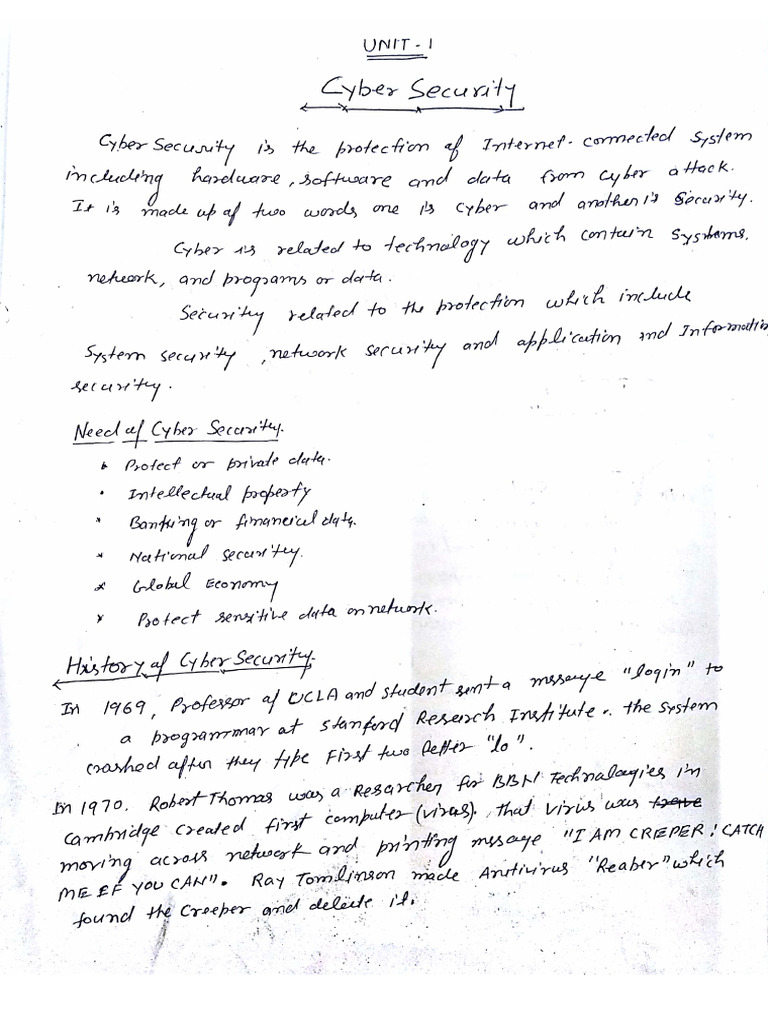 UNIT - 1
Cyber Security
Cyber Security is the protection of Internet-connected System
including hardware, software and data from cyber attack.
It is made up of two words one is cyber and another is Security.
Cyber is related to technology which contain systems,
network, and programs or data.
Security related to the protection which include
System security, network security and application and Information
security.
Need of Cyber Security.
• Protect or private data.
• Intellectual property
* Banking or financial data.
* National security.
* Global Economy
* Protect sensitive data on network.
History of Cyber Security.
In 1969, Professor of UCLA and student sent a message "login" to
a programmar at Stanford Reserch Institute. the system
crashed after they type First two letter "lo".
In 1970. Robert Thomas was a Researcher for BBN Technologies in
Cambridge created first computer (virus). that virus was
moving across network and printing message "I AM CREPER! CATCH
ME EF YOU CAN". Ray Tomlinson made Antivirus "Reaber" which
found the Creeper and delete it.